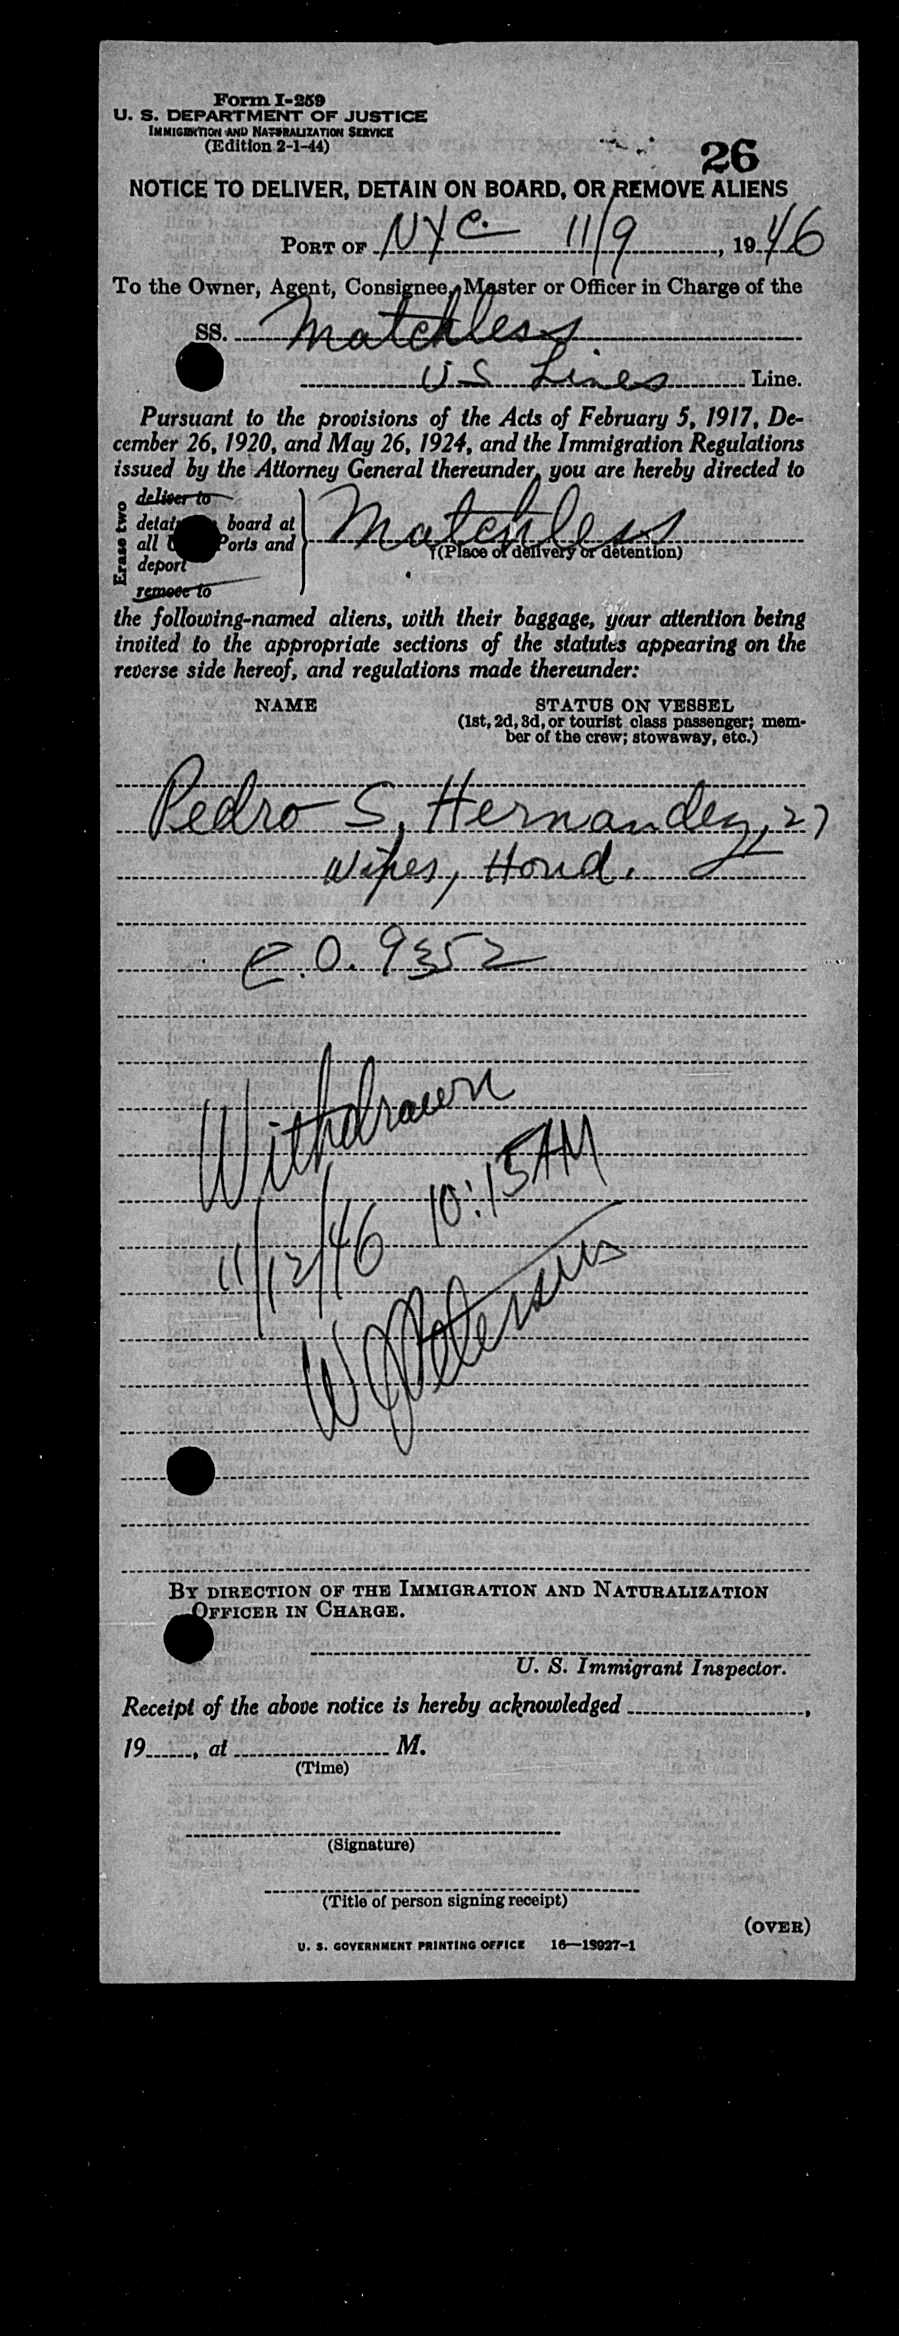 Form I-259
U. S. DEPARTMENT OF JUSTICE
IMMIGRATION AND NATURALIZATION SERVICE
(Edition 2-1-44)
26
NOTICE TO DELIVER, DETAIN ON BOARD, OR REMOVE ALIENS
PORT OF NYC. 11/9, 1946
To the Owner, Agent, Consignee, Master or Officer in Charge of the
SS. Matchless
US Lines Line.
Pursuant to the provisions of the Acts of February 5, 1917, De-
cember 26, 1920, and May 26, 1924, and the Immigration Regulations
issued by the Attorney General thereunder, you are hereby directed to
Erase two
deliver to
detain board at
all Ports and
deport
remove to
Matchless
(Place of delivery or detention)
the following-named aliens, with their baggage, your attention being
invited to the appropriate sections of the statutes appearing on the
reverse side hereof, and regulations made thereunder:
NAME STATUS ON VESSEL
(1st, 2d, 3d, or tourist class passenger; mem-
ber of the crew; stowaway, etc.)
Pedro S. Hernandez, 27
Wiper, Hond.
E.O. 9352
Withdrawn
11/12/46 10:15 AM
W J Peterson
BY DIRECTION OF THE IMMIGRATION AND NATURALIZATION
OFFICER IN CHARGE.
U. S. Immigrant Inspector.
Receipt of the above notice is hereby acknowledged ,
19 , at M.
(Time)
(Signature)
(Title of person signing receipt)
(OVER)
U. S. GOVERNMENT PRINTING OFFICE 16—13927-1